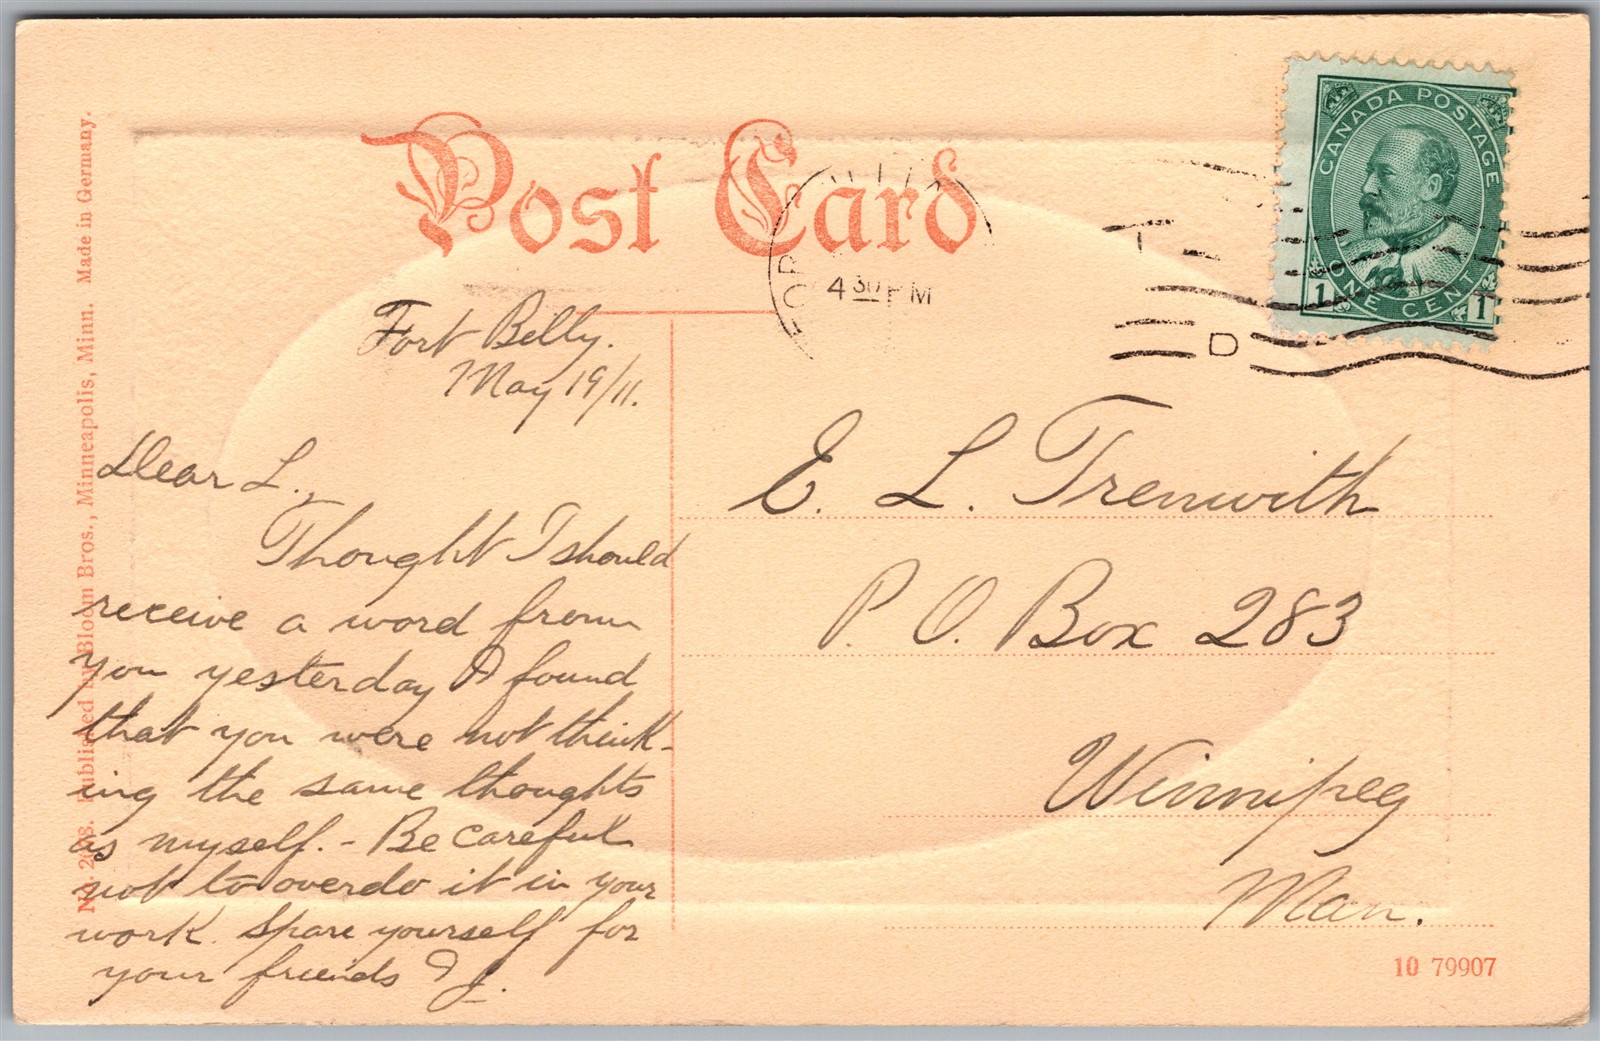 Post Card
CANADA POSTAGE
ONE CENT
1 1
FOR
4 30 PM
D
Fort Belly.
May 19/11.
Dear L.,
Thought I should
receive a word from
you yesterday & found
that you were not think-
ing the same thoughts
as myself. - Be careful
not to overdo it in your
work. Spare yourself for
your friends & J.
E. L. Trenwith
P. O. Box 283
Winnipeg
Man.
No. Published by Bloom Bros., Minneapolis, Minn. Made in Germany.
10 79907